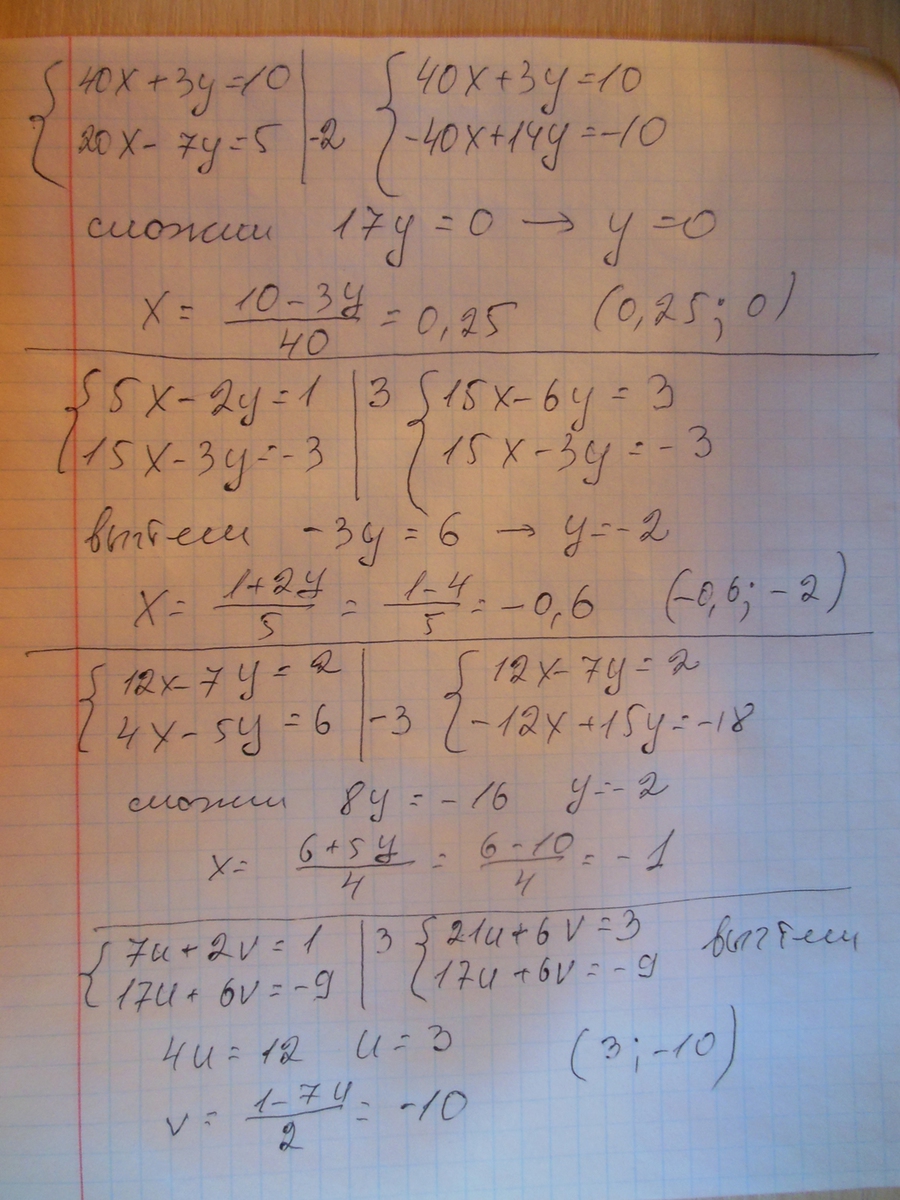 { 40x + 3y = 10 | { 40x + 3y = 10
20x - 7y = 5 | -2 -40x + 14y = -10
сложим 17y = 0 → y = 0
x = (10 - 3y)/40 = 0,25 (0,25; 0)
{ 5x - 2y = 1 | 3 { 15x - 6y = 3
15x - 3y = -3 | 15x - 3y = -3
вычтем -3y = 6 → y = -2
x = (1 + 2y)/5 = (1 - 4)/5 = -0,6 (-0,6; -2)
{ 12x - 7y = 2 | { 12x - 7y = 2
4x - 5y = 6 | -3 -12x + 15y = -18
сложим 8y = -16 y = -2
x = (6 + 5y)/4 = (6 - 10)/4 = -1
{ 7u + 2v = 1 | 3 { 21u + 6v = 3 вычтем
17u + 6v = -9 | 17u + 6v = -9
4u = 12 u = 3 (3; -10)
v = (1 - 7u)/2 = -10